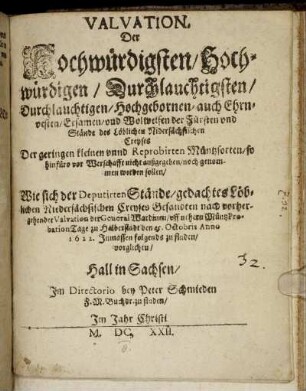 VALVATION.
Der
Hochwürdigsten/ Hoch-
würdigen / Durchlauchtigsten/
Durchlauchtigen/ Hochgebornen/ auch Ehrn-
vesten/ Ersamen/ vnd Wolweisen der Fürsten vnd
Stände des Löblichen Nidersächsischen
Creyses
Der geringen kleinen vnnd Reprobirten Müntzsorten/ so
hinfüro vor Werschafft nicht außgegeben/ noch genom-
men werden sollen/
Wie sich der Deputirten Stände/ gedachtes Löb-
lichen Niedersächsischen Creyses Gesandten nach vorher-
gehender Valvation der General Wardinen/ vff nehern Müntz Pro-
bation Tage zu Halberstadt den Octobris Anno
1622. Inmassen folgends zu finden/
verglichen/
32.
Hall in Sachsen/
Im Directorio bey Peter Schmieden
F. M. Buchdr. zu finden/
Im Jahr Christi
M. DC, XXII.